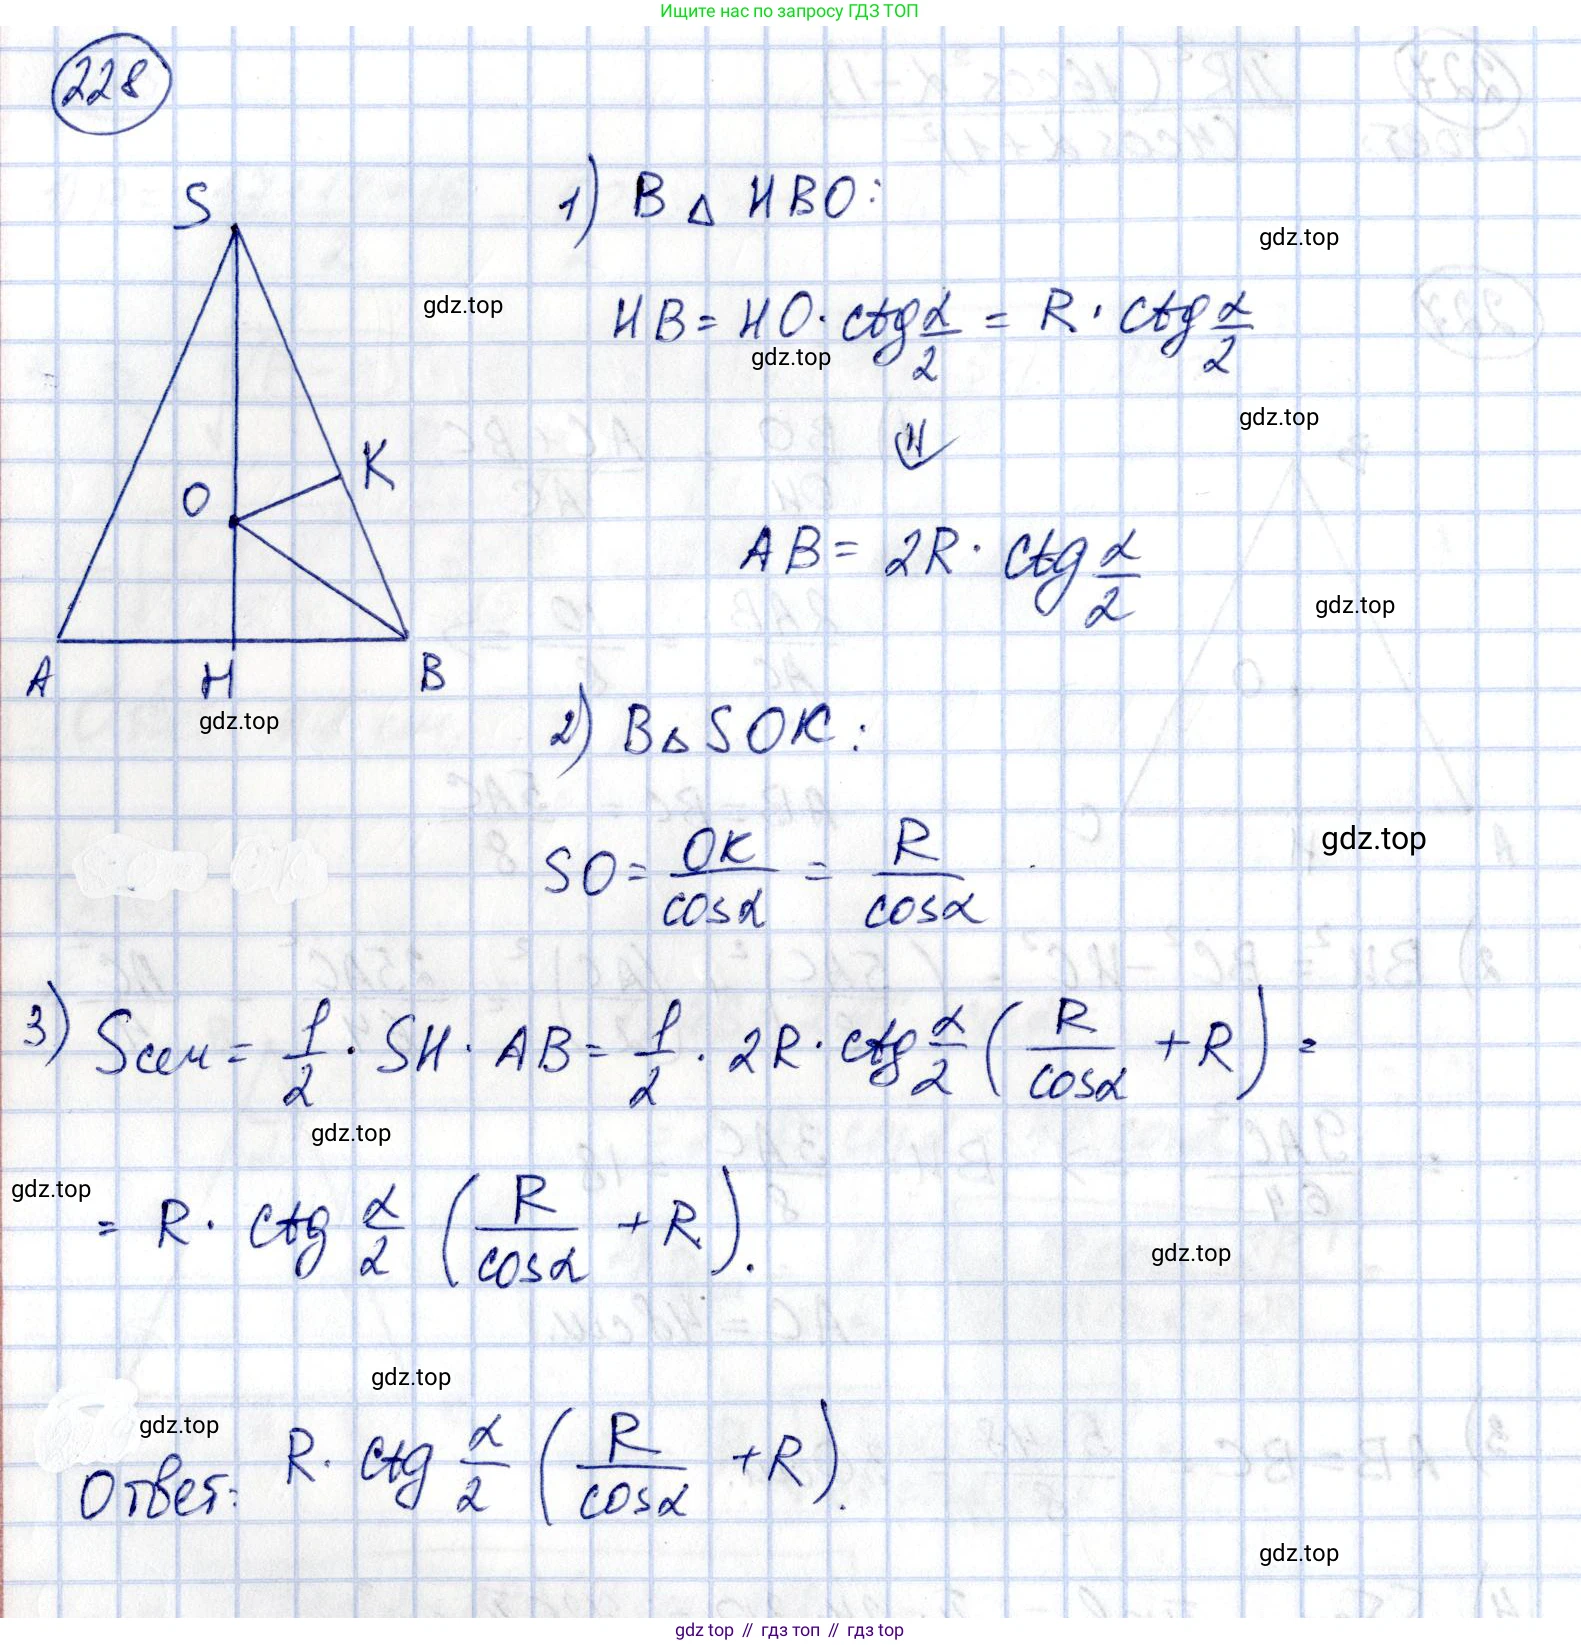 Ищите нас по запросу ГДЗ ТОП
228
S
1) В △ HBO:
gdz.top
gdz.top
HB = HO · ctg α/2 = R · ctg α/2
gdz.top
gdz.top
⇓
K
O
AB = 2R · ctg α/2
gdz.top
A H B
gdz.top
2) В △ SOK:
gdz.top
SO = OK/cosα = R/cosα
3) Sсеч = 1/2 · SH · AB = 1/2 · 2R · ctg α/2 (R/cosα + R) =
gdz.top
gdz.top
= R · ctg α/2 (R/cosα + R).
gdz.top
gdz.top
gdz.top
Ответ: R · ctg α/2 (R/cosα + R).
gdz.top
gdz.top // гдз топ // гдз top